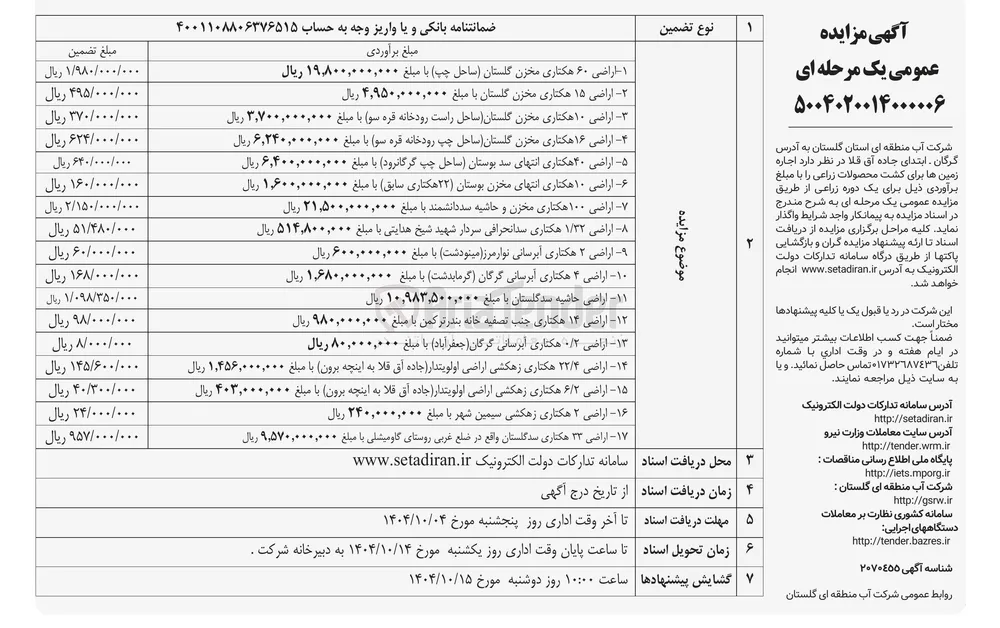 آگهی مزایده
عمومی یک مرحله ای
۵۰۰۴۰۲۰۰۱۴۰۰۰۰۰۶
شرکت آب منطقه ای استان گلستان به آدرس
گرگان . ابتدای جاده آق قلا در نظر دارد اجاره
زمین ها برای کشت محصولات زراعی را با مبلغ
برآوردی ذیل برای یک دوره زراعی از طریق
مزایده عمومی یک مرحله ای به شرح مندرج
در اسناد مزایده به پیمانکار واجد شرایط واگذار
نماید. کلیه مراحل برگزاری مزایده از دریافت
اسناد تا ارئه پیشنهاد مزایده گران و بازگشایی
پاکتها از طریق درگاه سامانه تدارکات دولت
الکترونیک به آدرس www.setadiran.ir انجام
خواهد شد.
این شرکت در رد یا قبول یک یا کلیه پیشنهادها
مختار است.
ضمناً جهت کسب اطلاعات بیشتر میتوانید
در ایام هفته و در وقت اداری با شماره
تلفن۰۱۷۳۲۶۸۷۴۳۶تماس حاصل نمائید. و یا
به سایت ذیل مراجعه نمایند.
آدرس سامانه تدارکات دولت الکترونیک
http://setadiran.ir
آدرس سایت معاملات وزارت نیرو
http://tender.wrm.ir
پایگاه ملی اطلاع رسانی مناقصات :
http://iets.mporg.ir
شرکت آب منطقه ای گلستان :
http://gsrw.ir
سامانه کشوری نظارت بر معاملات
دستگاههای اجرایی:
http://tender.bazres.ir
شناسه آگهی ۲۰۷۰۴۵۵
روابط عمومی شرکت آب منطقه ای گلستان
۱ نوع تضمین ضمانتنامه بانکی و یا واریز وجه به حساب ۴۰۰۱۱۰۸۸۰۶۳۷۶۵۱۵
۲ موضوع مزایده
مبلغ برآوردی مبلغ تضمین
۱-اراضی ۶۰ هکتاری مخزن گلستان (ساحل چپ) با مبلغ ۱۹,۸۰۰,۰۰۰,۰۰۰ ریال ۱/۹۸۰/۰۰۰/۰۰۰ ریال
۲- اراضی ۱۵ هکتاری مخزن گلستان با مبلغ ۴,۹۵۰,۰۰۰,۰۰۰ ریال ۴۹۵/۰۰۰/۰۰۰ ریال
۳- اراضی ۱۰هکتاری مخزن گلستان(ساحل راست رودخانه قره سو) با مبلغ ۳,۷۰۰,۰۰۰,۰۰۰ ریال ۳۷۰/۰۰۰/۰۰۰ ریال
۴- اراضی ۱۶هکتاری مخزن گلستان(ساحل چپ رودخانه قره سو) با مبلغ ۶,۲۴۰,۰۰۰,۰۰۰ ریال ۶۲۴/۰۰۰/۰۰۰ ریال
۵- اراضی ۴۰هکتاری انتهای سد بوستان (ساحل چپ گرگانرود) با مبلغ ۶,۴۰۰,۰۰۰,۰۰۰ ریال ۶۴۰/۰۰۰/۰۰۰ ریال
۶- اراضی ۱۰هکتاری انتهای مخزن بوستان (۲۲هکتاری سابق) با مبلغ ۱,۶۰۰,۰۰۰,۰۰۰ ریال ۱۶۰/۰۰۰/۰۰۰ ریال
۷- اراضی ۱۰۰هکتاری مخزن و حاشیه سددانشمند با مبلغ ۲۱,۵۰۰,۰۰۰,۰۰۰ ریال ۲/۱۵۰/۰۰۰/۰۰۰ ریال
۸- اراضی ۱/۳۲ هکتاری سدانحرافی سردار شهید شیخ هدایتی با مبلغ ۵۱۴,۸۰۰,۰۰۰ ریال ۵۱/۴۸۰/۰۰۰ ریال
۹- اراضی ۲ هکتاری آبرسانی نوارمرز(مینودشت) با مبلغ ۶۰۰,۰۰۰,۰۰۰ ریال ۶۰/۰۰۰/۰۰۰ ریال
۱۰- اراضی ۴ هکتاری آبرسانی گرگان (گرمابدشت) با مبلغ ۱,۶۸۰,۰۰۰,۰۰۰ ریال ۱۶۸/۰۰۰/۰۰۰ ریال
۱۱- اراضی حاشیه سدگلستان با مبلغ ۱۰,۹۸۳,۵۰۰,۰۰۰ ریال ۱/۰۹۸/۳۵۰/۰۰۰ ریال
۱۲- اراضی ۱۴ هکتاری جنب تصفیه خانه بندرترکمن با مبلغ ۹۸۰,۰۰۰,۰۰۰ ریال ۹۸/۰۰۰/۰۰۰ ریال
۱۳- اراضی ۰/۲ هکتاری آبرسانی گرگان(جعفرآباد) با مبلغ ۸۰,۰۰۰,۰۰۰ ریال ۸/۰۰۰/۰۰۰ ریال
۱۴- اراضی ۲۲/۴ هکتاری زهکشی اراضی اولویتدار(جاده آق قلا به اینچه برون) با مبلغ ۱,۴۵۶,۰۰۰,۰۰۰ ریال ۱۴۵/۶۰۰/۰۰۰ ریال
۱۵- اراضی ۶/۲ هکتاری زهکشی اراضی اولویتدار(جاده آق قلا به اینچه برون) با مبلغ ۴۰۳,۰۰۰,۰۰۰ ریال ۴۰/۳۰۰/۰۰۰ ریال
۱۶- اراضی ۲ هکتاری زهکشی سیمین شهر با مبلغ ۲۴۰,۰۰۰,۰۰۰ ریال ۲۴/۰۰۰/۰۰۰ ریال
۱۷- اراضی ۳۳ هکتاری سدگلستان واقع در ضلع غربی روستای گاومیشلی با مبلغ ۹,۵۷۰,۰۰۰,۰۰۰ ریال ۹۵۷/۰۰۰/۰۰۰ ریال
۳ محل دریافت اسناد سامانه تدارکات دولت الکترونیک www.setadiran.ir
۴ زمان دریافت اسناد از تاریخ درج آگهی
۵ مهلت دریافت اسناد تا آخر وقت اداری روز پنجشنبه مورخ ۱۴۰۴/۱۰/۰۴
۶ زمان تحویل اسناد تا ساعت پایان وقت اداری روز یکشنبه مورخ ۱۴۰۴/۱۰/۱۴ به دبیرخانه شرکت .
۷ گشایش پیشنهادها ساعت ۱۰:۰۰ روز دوشنبه مورخ ۱۴۰۴/۱۰/۱۵
AriaTender